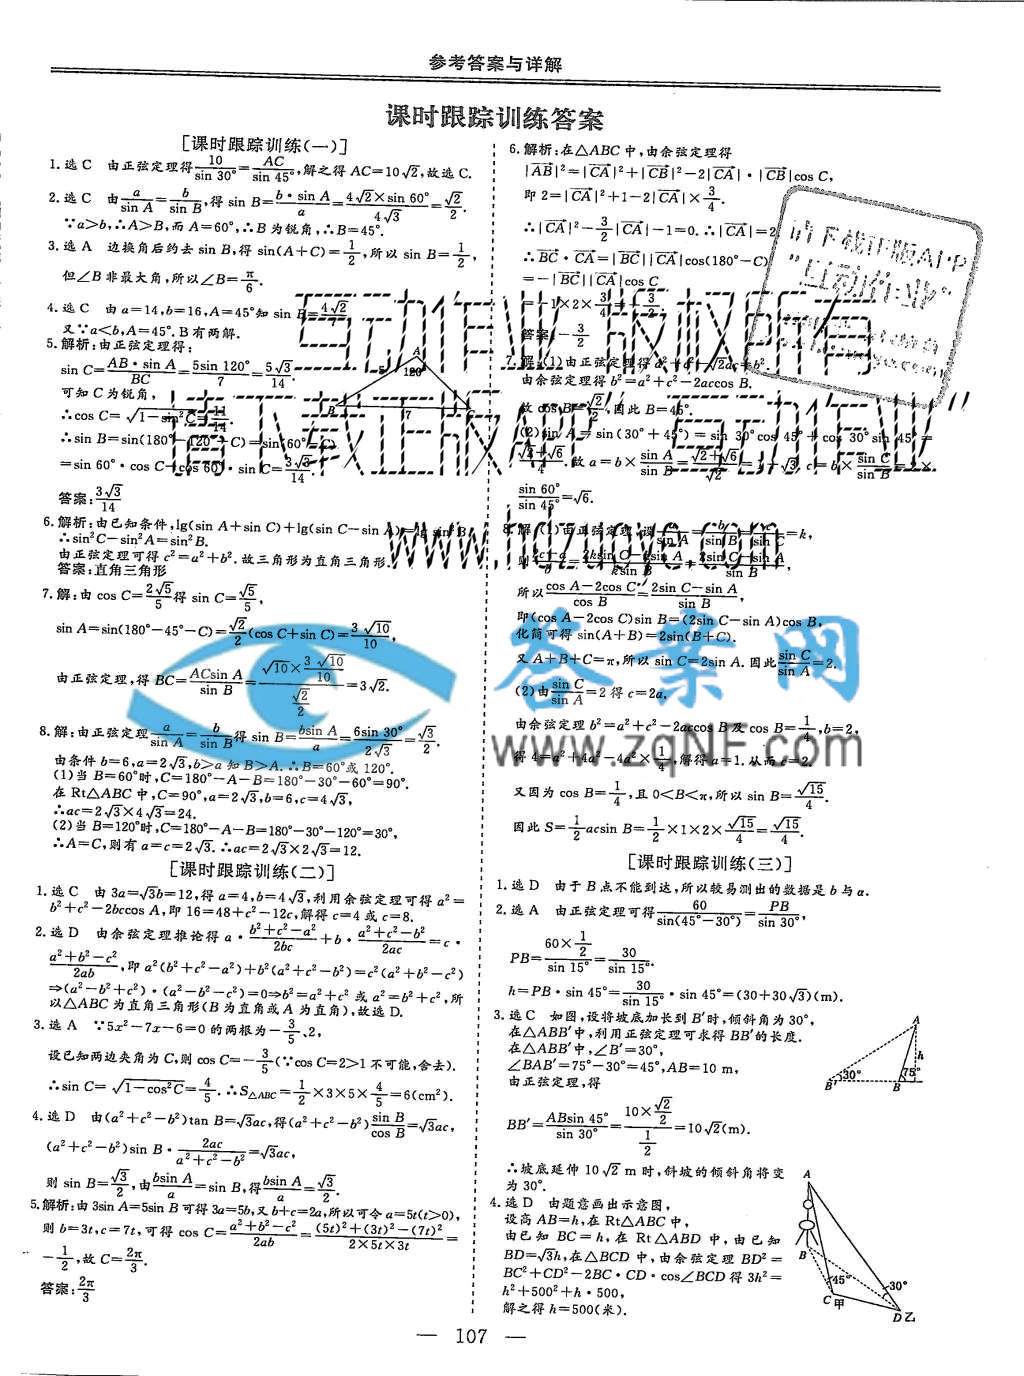 参考答案与详解
课时跟踪训练答案
[课时跟踪训练(一)]
1.选C 由正弦定理得10/sin 30°=AC/sin 45°,解之得 AC=10√2,故选 C.
2.选C 由a/sin A=b/sin B,得 sin B=b·sin A/a=4√2×sin 60°/4√3=√2/2.
∵a>b,∴A>B,而 A=60°,∴B 为锐角,∴B=45°.
3.选A 边换角后约去 sin B,得 sin(A+C)=1/2,所以 sin B=1/2,
但∠B 非最大角,所以∠B=π/6.
4.选C 由 a=14,b=16,A=45°知 sin B=4√2/7
又∵a<b,A=45°.B 有两解.
5.解析:由正弦定理得:
sin C=AB·sin A/BC=5sin 120°/7=5√3/14.
可知 C 为锐角,
∴cos C=√1-sin²C=11/14.
∴sin B=sin(180°-120°-C)=sin(60°-C)
=sin 60°·cos C-cos 60°·sin C=3√3/14.
答案:3√3/14
6.解析:由已知条件,lg(sin A+sin C)+lg(sin C-sin A)=lg sin²B,
∴sin²C-sin²A=sin²B.
由正弦定理可得 c²=a²+b².故三角形为直角三角形.
答案:直角三角形
7.解:由 cos C=2√5/5得 sin C=√5/5,
sin A=sin(180°-45°-C)=√2/2(cos C+sin C)=3√10/10,
由正弦定理,得 BC=ACsin A/sin B=√10×3√10/10/√2/2=3√2.
8.解:由正弦定理a/sin A=b/sin B得 sin B=bsin A/a=6sin 30°/2√3=√3/2.
由条件 b=6,a=2√3,b>a 知 B>A.∴B=60°或 120°.
(1)当 B=60°时,C=180°-A-B=180°-30°-60°=90°.
在 Rt△ABC 中,C=90°,a=2√3,b=6,c=4√3,
∴ac=2√3×4√3=24.
(2)当 B=120°时,C=180°-A-B=180°-30°-120°=30°,
∴A=C,则有 a=c=2√3.∴ac=2√3×2√3=12.
[课时跟踪训练(二)]
1.选C 由 3a=√3b=12,得 a=4,b=4√3,利用余弦定理可得 a²=
b²+c²-2bccos A,即 16=48+c²-12c,解得 c=4 或 c=8.
2.选D 由余弦定理推论得 a·b²+c²-a²/2bc+b·a²+c²-b²/2ac=c·
a²+b²-c²/2ab,即 a²(b²+c²-a²)+b²(a²+c²-b²)=c²(a²+b²-c²)
⇒(a²-b²+c²)·(a²-b²-c²)=0⇒b²=a²+c² 或 a²=b²+c²,所
以△ABC 为直角三角形(B 为直角或 A 为直角),故选 D.
3.选A ∵5x²-7x-6=0 的两根为-3/5、2,
设已知两边夹角为 C,则 cos C=-3/5(∵cos C=2>1 不可能,舍去).
∴sin C=√1-cos²C=4/5.∴S△ABC=1/2×3×5×4/5=6(cm²).
4.选D 由(a²+c²-b²)tan B=√3ac,得(a²+c²-b²)sin B/cos B=√3ac,
(a²+c²-b²)sin B·2ac/a²+c²-b²=√3ac,
则 sin B=√3/2,由bsin A/a=sin B,得bsin A/a=√3/2.
5.解析:由 3sin A=5sin B 可得 3a=5b,又 b+c=2a,所以可令 a=5t(t>0),
则 b=3t,c=7t,可得 cos C=a²+b²-c²/2ab=(5t)²+(3t)²-(7t)²/2×5t×3t=
-1/2,故 C=2π/3.
答案:2π/3
6.解析:在△ABC 中,由余弦定理得
|AB|²=|CA|²+|CB|²-2|CA|·|CB|cos C,
即 2=|CA|²+1-2|CA|×3/4.
∴|CA|²-3/2|CA|-1=0.∴|CA|=2.
∴BC·CA=|BC||CA|cos(180°-C)
=-|BC||CA|cos C
=-1×2×3/4=-3/2.
答案:-3/2
7.解:(1)由正弦定理得 a²+c²-√2ac=b².
由余弦定理得 b²=a²+c²-2accos B.
故 cos B=√2/2,因此 B=45°.
(2)sin A=sin(30°+45°)=sin 30°cos 45°+cos 30°sin 45°=
√2+√6/4.故 a=b×sin A/sin B=√2+√6/√2=1+√3.c=b×sin C/sin B=2×
sin 60°/sin 45°=√6.
8.解:(1)由正弦定理,设a/sin A=b/sin B=c/sin C=k,
则2c-a/b=2ksin C-ksin A/ksin B=2sin C-sin A/sin B,
所以cos A-2cos C/cos B=2sin C-sin A/sin B,
即(cos A-2cos C)sin B=(2sin C-sin A)cos B,
化简可得 sin(A+B)=2sin(B+C).
又 A+B+C=π,所以 sin C=2sin A.因此sin C/sin A=2.
(2)由sin C/sin A=2 得 c=2a,
由余弦定理 b²=a²+c²-2accos B 及 cos B=1/4,b=2,
得 4=a²+4a²-4a²×1/4,解得 a=1.从而 c=2.
又因为 cos B=1/4,且 0<B<π,所以 sin B=√15/4.
因此 S=1/2acsin B=1/2×1×2×√15/4=√15/4.
[课时跟踪训练(三)]
1.选D 由于 B 点不能到达,所以较易测出的数据是 b 与 a.
2.选A 由正弦定理可得60/sin(45°-30°)=PB/sin 30°,
PB=60×1/2/sin 15°=30/sin 15°.
h=PB·sin 45°=30/sin 15°·sin 45°=(30+30√3)(m).
3.选C 如图,设将坡底加长到 B′时,倾斜角为 30°,
在△ABB′中,利用正弦定理可求得 BB′的长度.
在△ABB′中,∠B′=30°,
∠BAB′=75°-30°=45°,AB=10 m,
由正弦定理,得
BB′=ABsin 45°/sin 30°=10×√2/2/1/2=10√2(m).
∴坡底延伸 10√2 m 时,斜坡的倾斜角将变
为 30°.
4.选D 由题意画出示意图,
设高 AB=h,在 Rt△ABC 中,
由已知 BC=h,在 Rt△ABD 中,由已知
BD=√3h,在△BCD 中,由余弦定理 BD²=
BC²+CD²-2BC·CD·cos∠BCD 得 3h²=
h²+500²+h·500,
解之得 h=500(米).
A
h
30°
75°
B′
B
A
B
45°
30°
C 甲
D 乙
互动作业 版权所有
请下载正版APP "互动作业"
www.hdzuoye.com
答案网
www.zqNF.com
— 107 —